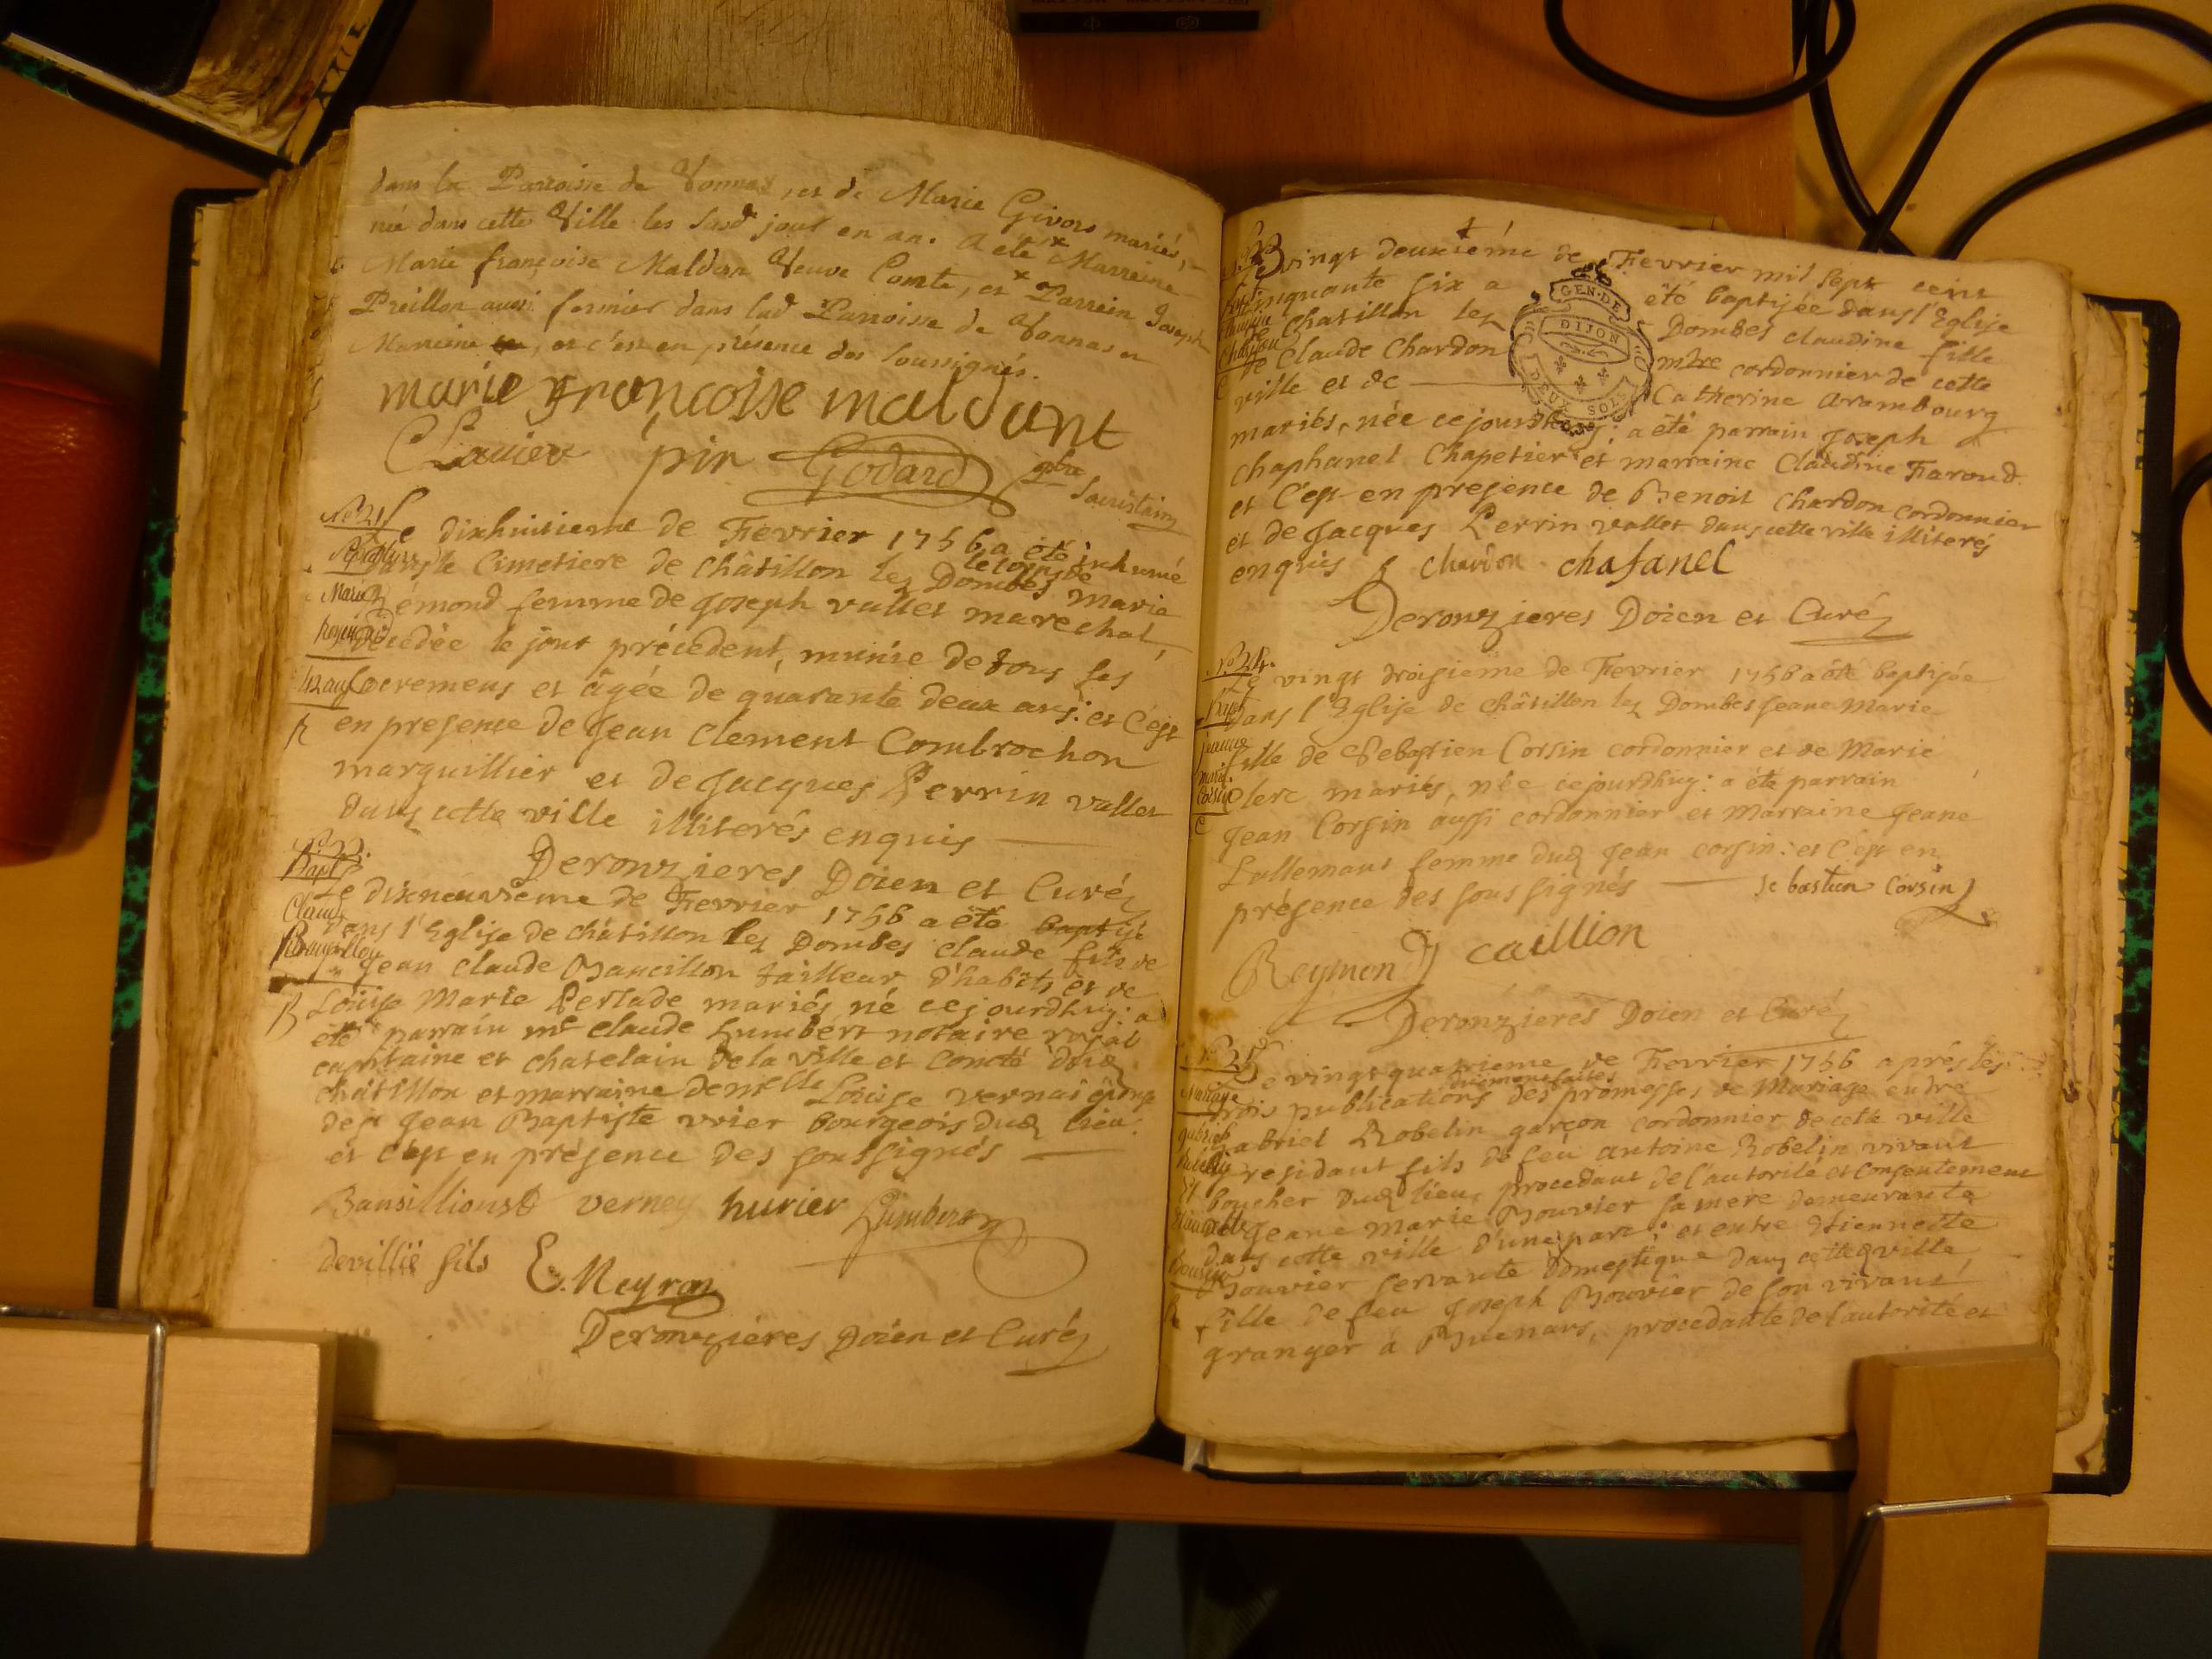 dans la Parroisse de Vonnas, et de Marie Givors mariés,
née dans cette Ville les susd jour en an. a été x Marreine
Marie françoise Maldan Veuve Comte, et x Parrein Joseph
Preillon aussi fermier dans lad Parroisse de Vonnas en
Mareine, et c'est en présence des soussignés.
marie françoise maldant
pin Godard pbre Sacristain
No 21 Le dixhuitieme de Fevrier 1756 a été inhumé
dans le Cimetiere de Châtillon lez Dombes le corps de Marie
Rémond femme de Joseph vallet marechal,
decedée le jour précedent, munie de tous les
sacremens et âgée de quarante deux ans: et C'est
en presence de Jean Clement Combrochon
marguillier et de Jacques Perrin vallet
dans cette ville illiterés enquis
Deronzieres Doien et Curé
Le dixneuvieme de Fevrier 1756 a été baptisé
dans l'Eglise de châtillon lez Dombes Claude fils de
Jean Claude Bancillon tailleur d'habits et de
Louise Marie Perlade mariés, né cejourdhuy: a
été parrain mr claude humbert notaire royal
capitaine et chatelain de la ville et Comté dud
châtillon et marraine demlle Louise vernai épouse
de sr Jean Baptiste vrier bourgeois dud lieu:
et C'est en présence des soussignés
Bansillions verney hurier humbert
devillie fils E. Neyron
Deronzieres Doien et Curé
Le vingt deuxième de Fevrier mil sept cent
cinquante six a été baptisée dans l'Eglise
de Chatillon lez Dombes claudine fille
de Claude Chardon mtre cordonnier de cette
ville et de Catherine Arambourg
GEN.DE
DIJON
DEUX SOLS
mariés, née cejourdhuy: a été parrain Joseph
Chaphanel Chapetier et marraine Claudine Farond
et C'est en presence de Benoit Chardon cordonnier
et de Jacques Perrin vallet dans cette ville illiterés
enquis chardon chafanel
Deronzieres Doien et Curé
No 24. Le vingt troisieme de Fevrier 1756 a été baptisée
dans l'Eglise de châtillon lez Dombes Jeane Marie
fille de Sebastien Corsin cordonnier et de Marie
Clerc mariés, née cejourdhuy: a été parrain
Jean Corsin aussi cordonnier et Marraine Jeane
Lallemant femme dud Jean corsin: et C'est en
présence des soussignés sebastien Corsin
Reymond caillion
Deronzieres Doien et Curé
No 25 Le vingt quatrieme de Fevrier 1756 aprés les
trois publications duement faites des promesses de Mariage entre
Gabriel Robelin garçon cordonnier de cette ville
y residant fils de feu antoine Robelin vivant
boucher dud lieu, procedant de l'autorité et Consentement
de Jeane Marie Bouvier sa mere demeurante
dans cette ville d'une part; et entre Etiennette
Bouvier servante Domestique dans cette ville
fille de feu Joseph Bouvier de son vivant
granger à Buenans, procedante de l'autorité et